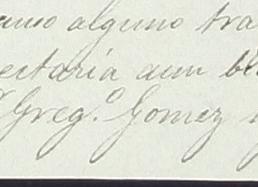 alguno tra
ectaria aun bi
Greg.º Gomez y